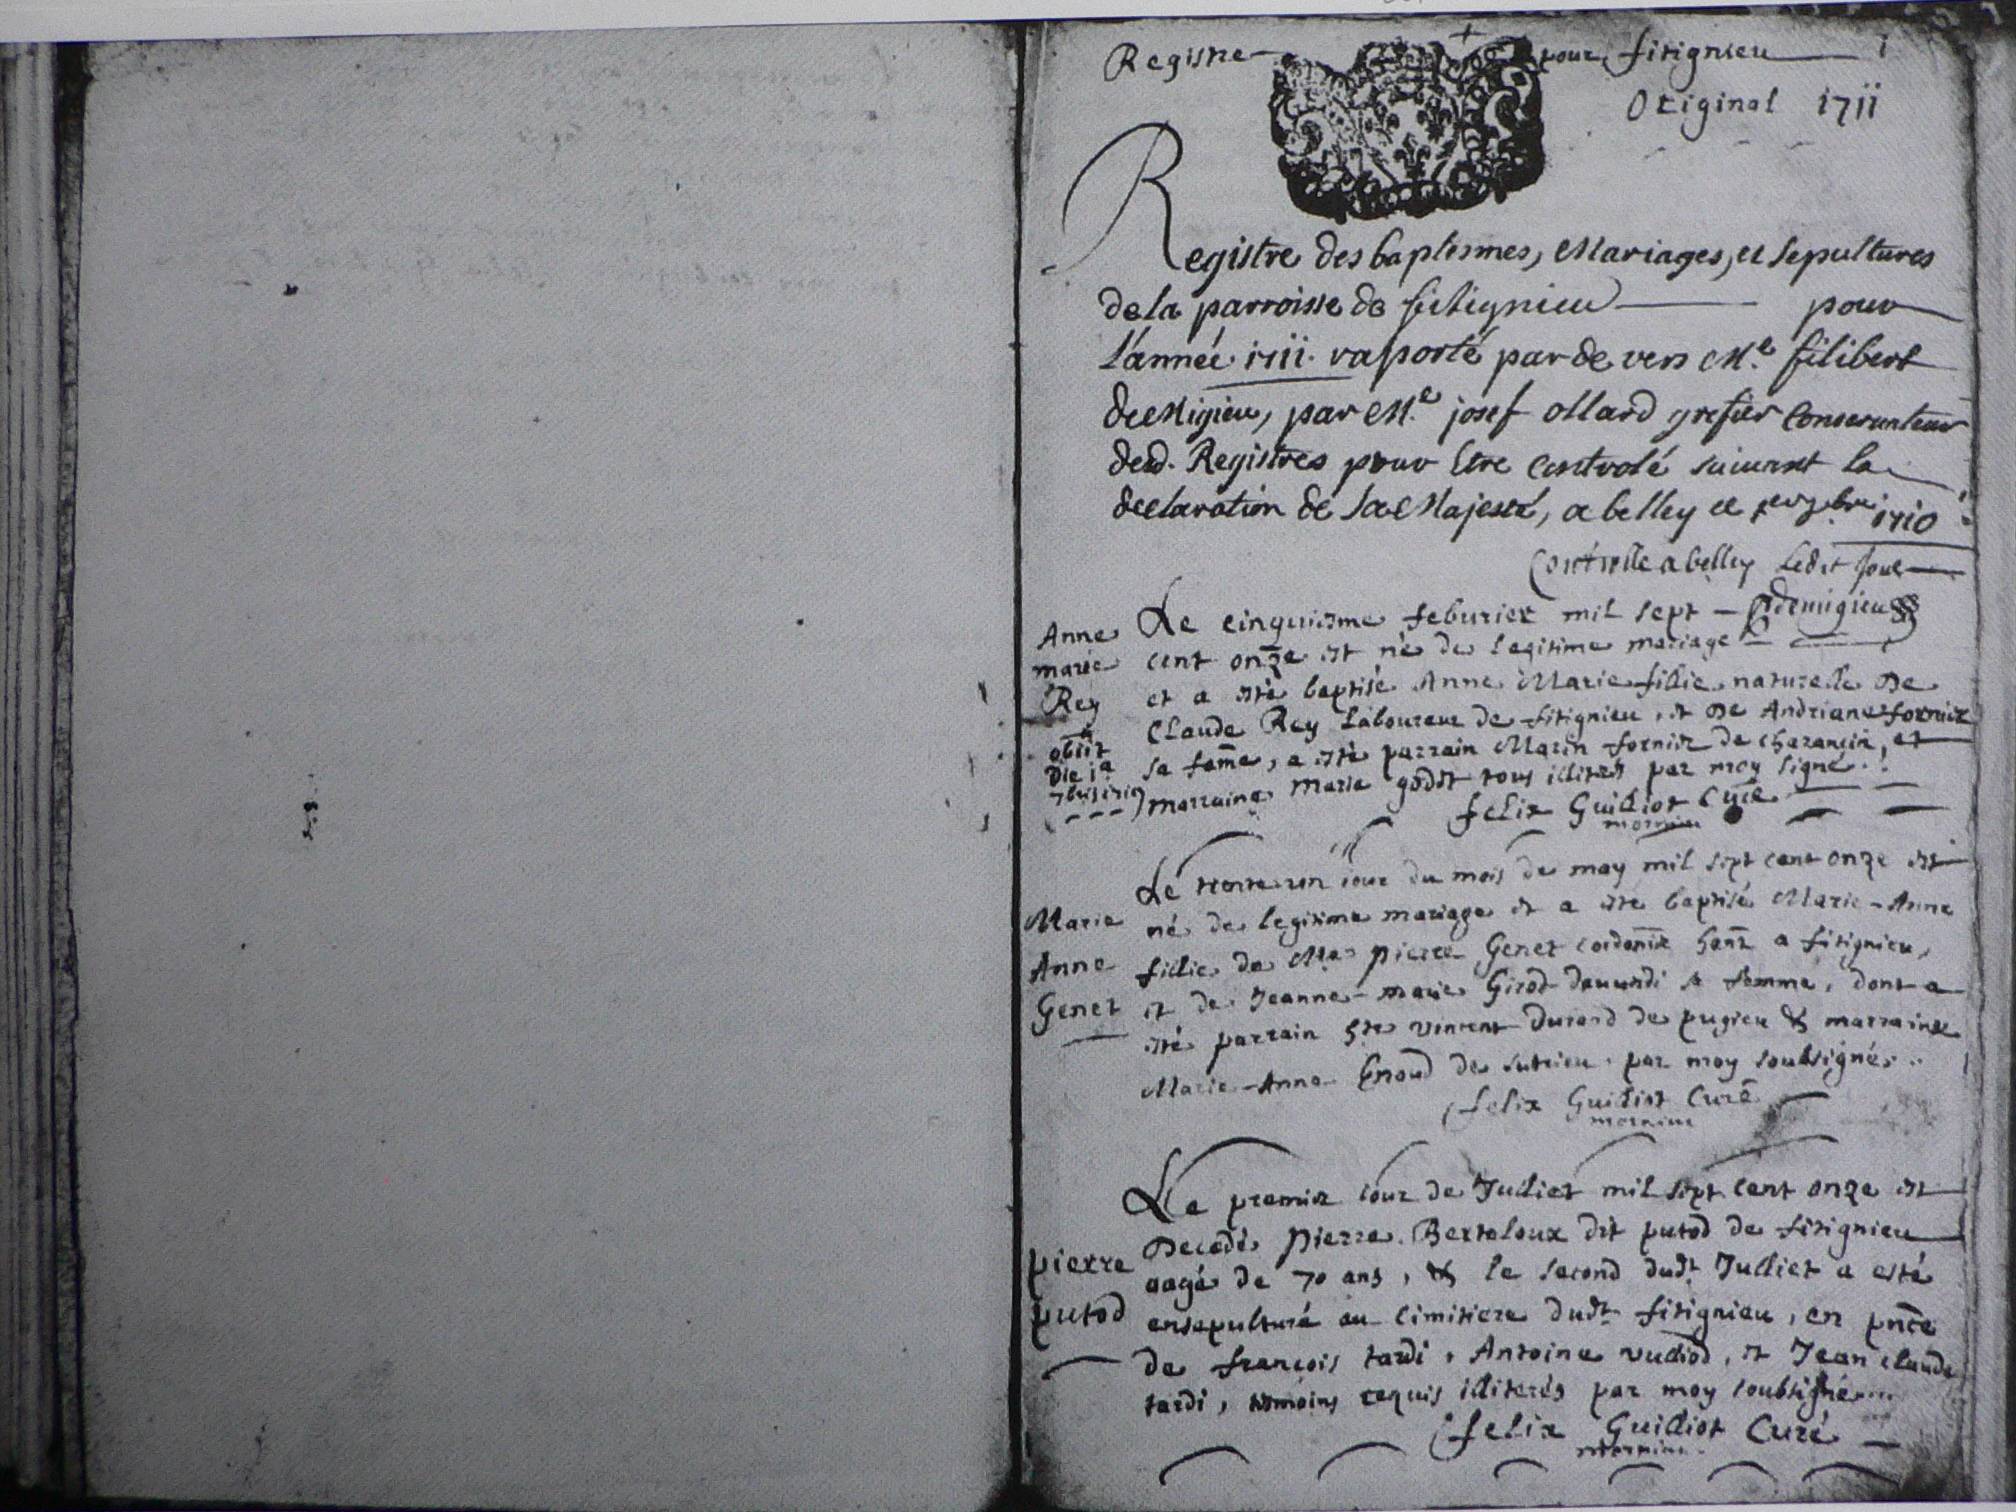 Registre pour fitignieu 1
Original 1711
Registre des baptesmes, Mariages, et sepultures
de la parroisse de fitignieu pour
L'année 1711. raporté par de vers Me. filibert
de Migieu, par Me. josef ollard grefier Conservateur
desd. Registres pour Etre controlé suivant la
declaration de sa Majesté, a belley ce 1710
Controlle a belley Ledit Jour
Demigieu
Anne
marie
Rey
obiit
die 1a
Le cinquiesme feburier mil sept
cent onze est né de legitime mariage
et a esté baptisé Anne Marie fillie naturelle de
Claude Rey Laboureur de fitignieu, et de Andriane fornier
sa fame, a esté parrain Marin fornier de charancin, et
marraine Marie godet tous illiterés par moy signé.
felix Guilliot Curé
Marie
Anne
Genet
Le trente un iour du mois de may mil sept cent onze est
né de legitime mariage et a esté baptisé Marie-Anne
fillie de Me pierre Genet cordonier a fitignieu,
et de Jeanne-marie Girod sa femme, dont a
esté parrain vincent Durand de pugieu & marraine
Marie-Anne de sutrieu par moy soubsigné..
felix Guilliot Curé
pierre
putod
Le premier iour de Julliet mil sept cent onze est
Decedé pierre Bertoloux dit putod de fitignieu
aagé de 70 ans, & le second dudt Julliet a esté
ensepulturé au cimitiere dudt fitignieu, en pnce
de françois tardi, Antoine vulliod, et Jean claude
tardi, temoins requis illiterés par moy soubsigné....
felix Guilliot Curé